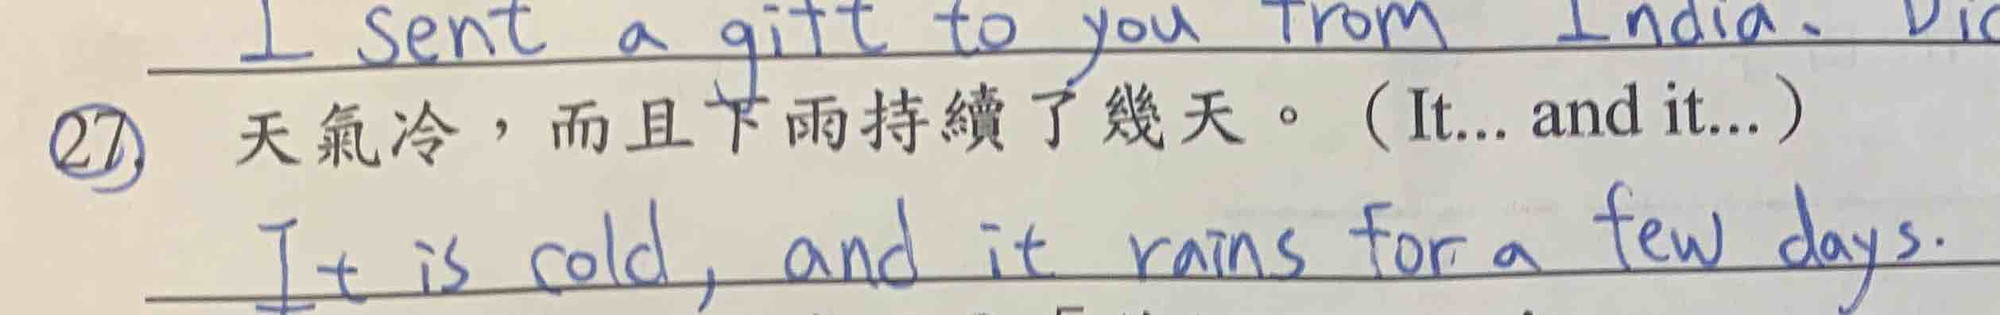 I sent a gift to you from India.
27. 天氣冷，而且下雨持續了幾天。（It... and it...）
It is cold, and it rains for a few days.